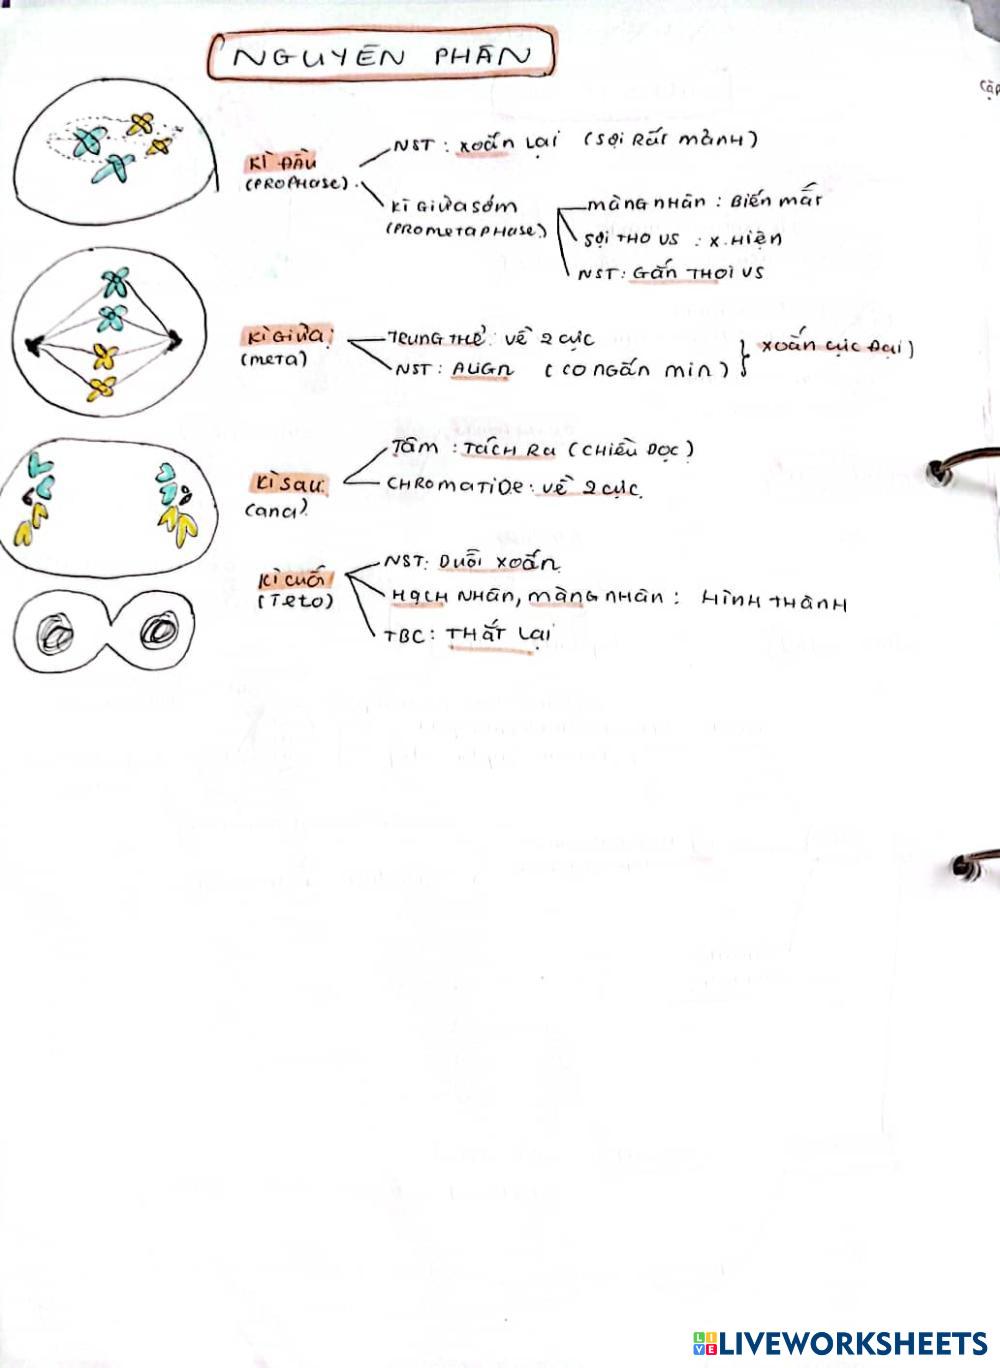 NGUYÊN PHÂN
Cặp
KÌ ĐẦU
(PROPHASE)
NST: XOẮN LẠI (SỢI RẤT MẢNH)
KÌ GIỮA SỚM
(PROMETAPHASE)
MÀNG NHÂN: BIẾN MẤT
SỢI THOI VS: X.HIỆN
NST: GẮN THOI VS
KÌ GIỮA
(META)
TRUNG THỂ: VỀ 2 CỰC
NST: ALIGN (CO NGẮN MIN)
XOẮN CỰC ĐẠI)
KÌ SAU
(ANA)
TÂM: TÁCH RA (CHIỀU DỌC)
CHROMATIDE: VỀ 2 CỰC.
KÌ CUỐI
(TELO)
NST: DUỖI XOẮN.
HẠCH NHÂN, MÀNG NHÂN: HÌNH THÀNH
TBC: THẮT LẠI
LIVEWORKSHEETS